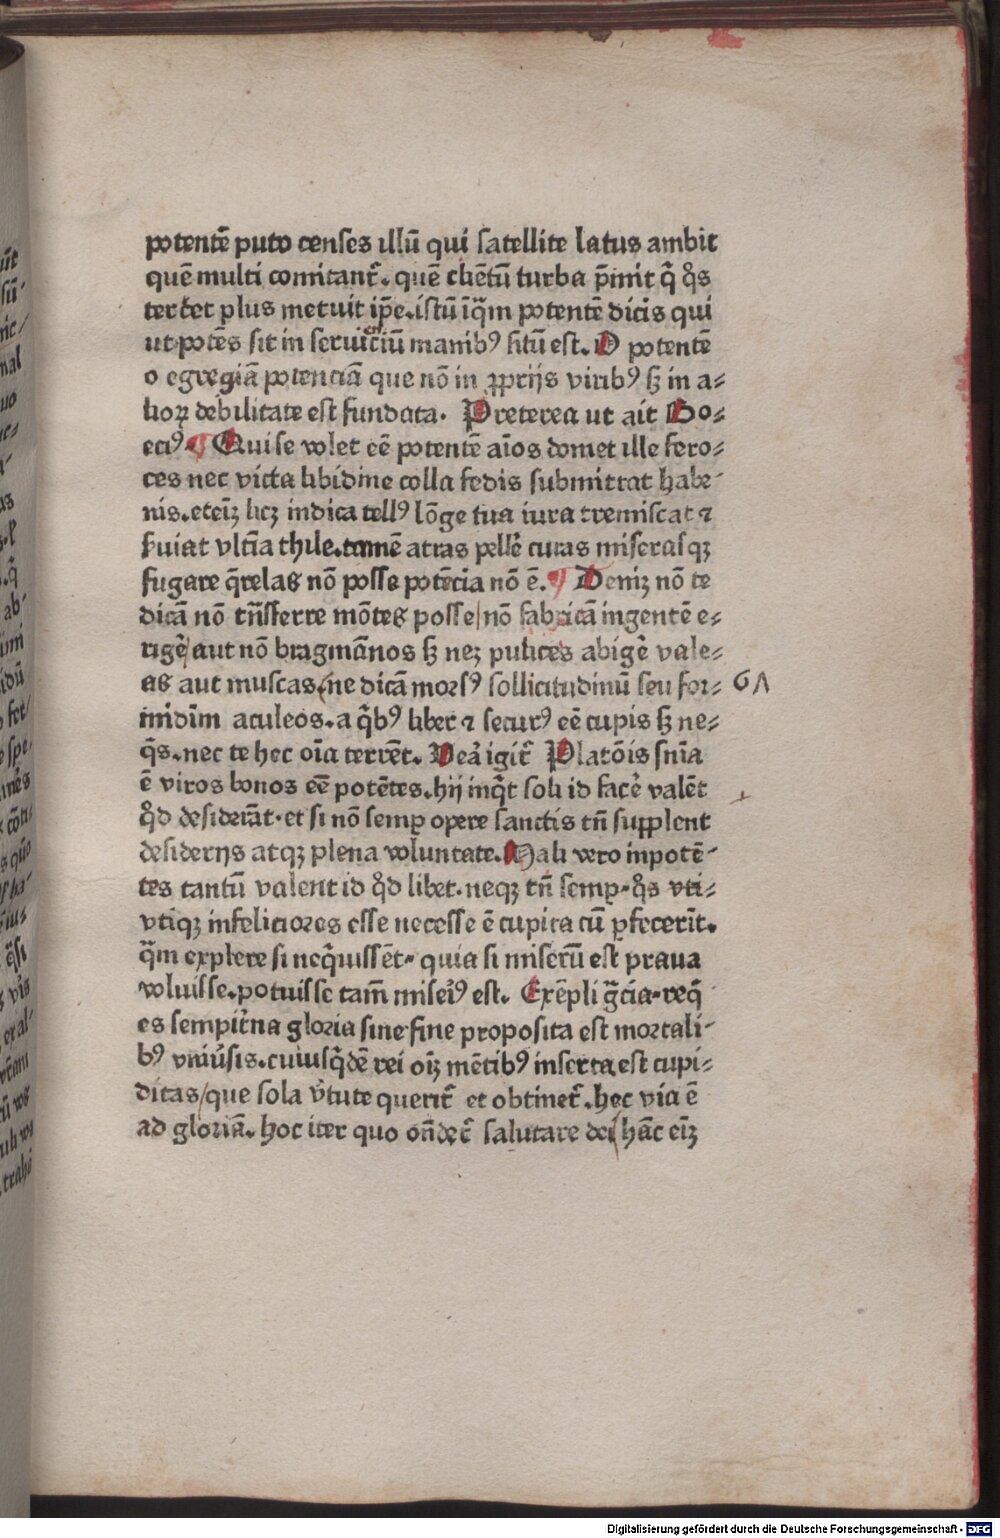 potentē puto censes illū qui satellite latus ambit
quē multi comitant̄. quē cliētū turba p̄mit q̄ q̊s
terret plus metuit ip̄e. istū īq̄m potentē dicis qui
ut potēs sit in seruiciū manibꝰ sitū est. O potentē
o egregiā potenciā que nō in ꝓprijs viribꝰ sꝫ in a⸗
lioꝝ debilitate est fundata. Preterea ut ait Bo⸗
eciꝰ. ¶ Qui se volet eē potentē aīos domet ille fero⸗
ces nec victa libidine colla fedis submittat habe⸗
nis. eteīꝫ licꝫ indica tellꝰ lōge tua iura tremiscat ⁊
seruiat vltīa thile. tamē atras pelle᷑ curas miserasqꝫ
fugare q̄relas nō posse potēcia nō ē. ¶ Deniꝫ nō te
dicā nō trn̄sferre mōtes posse/ nō fabricā ingentē e⸗
rige᷑/ aut nō bragmānos sꝫ neꝫ pulices abige᷑ vale⸗
as aut muscas/ ne dicā morsꝰ sollicitudinū seu for⸗
midīm aculeos. a q̄bꝰ liber ⁊ securꝰ eē cupis sꝫ ne⸗
q̄s. nec te hec oīa terrēt. Vera igit̄ Platōis sn̄ia
ē viros bonos eē potētes. hij inq̄t soli id face᷑ valēt
q̊d desiderāt. et si nō semꝑ opere sanctis tn̄ supplent
desiderijs atqꝫ plena voluntate. Mali vero inpotē⸗
tes tantū valent id q̊d libet. neqꝫ tn̄ semꝑ. q̊s vti⸗
vtiqꝫ infeliciores esse necesse ē cupita cū ꝑfecerīt.
q̄m explere si neq̄uissēt. quia si miserū est praua
voluisse. potuisse tam̄ miserꝰ est. Exēpli gr̄cia. req̄
es sempit̄na gloria sine fine proposita est mortali⸗
bꝰ vniu᷑sis. cuiusq̄dē rei oīꝫ mētibꝰ inserta est cupi⸗
ditas/ que sola v̄tute querit̄ et obtinet̄. hec via ē
ad gloriā. hoc iter quo on̄det̄ salutare dei/ hāc eīꝫ
Digitalisierung gefördert durch die Deutsche Forschungsgemeinschaft - DFG